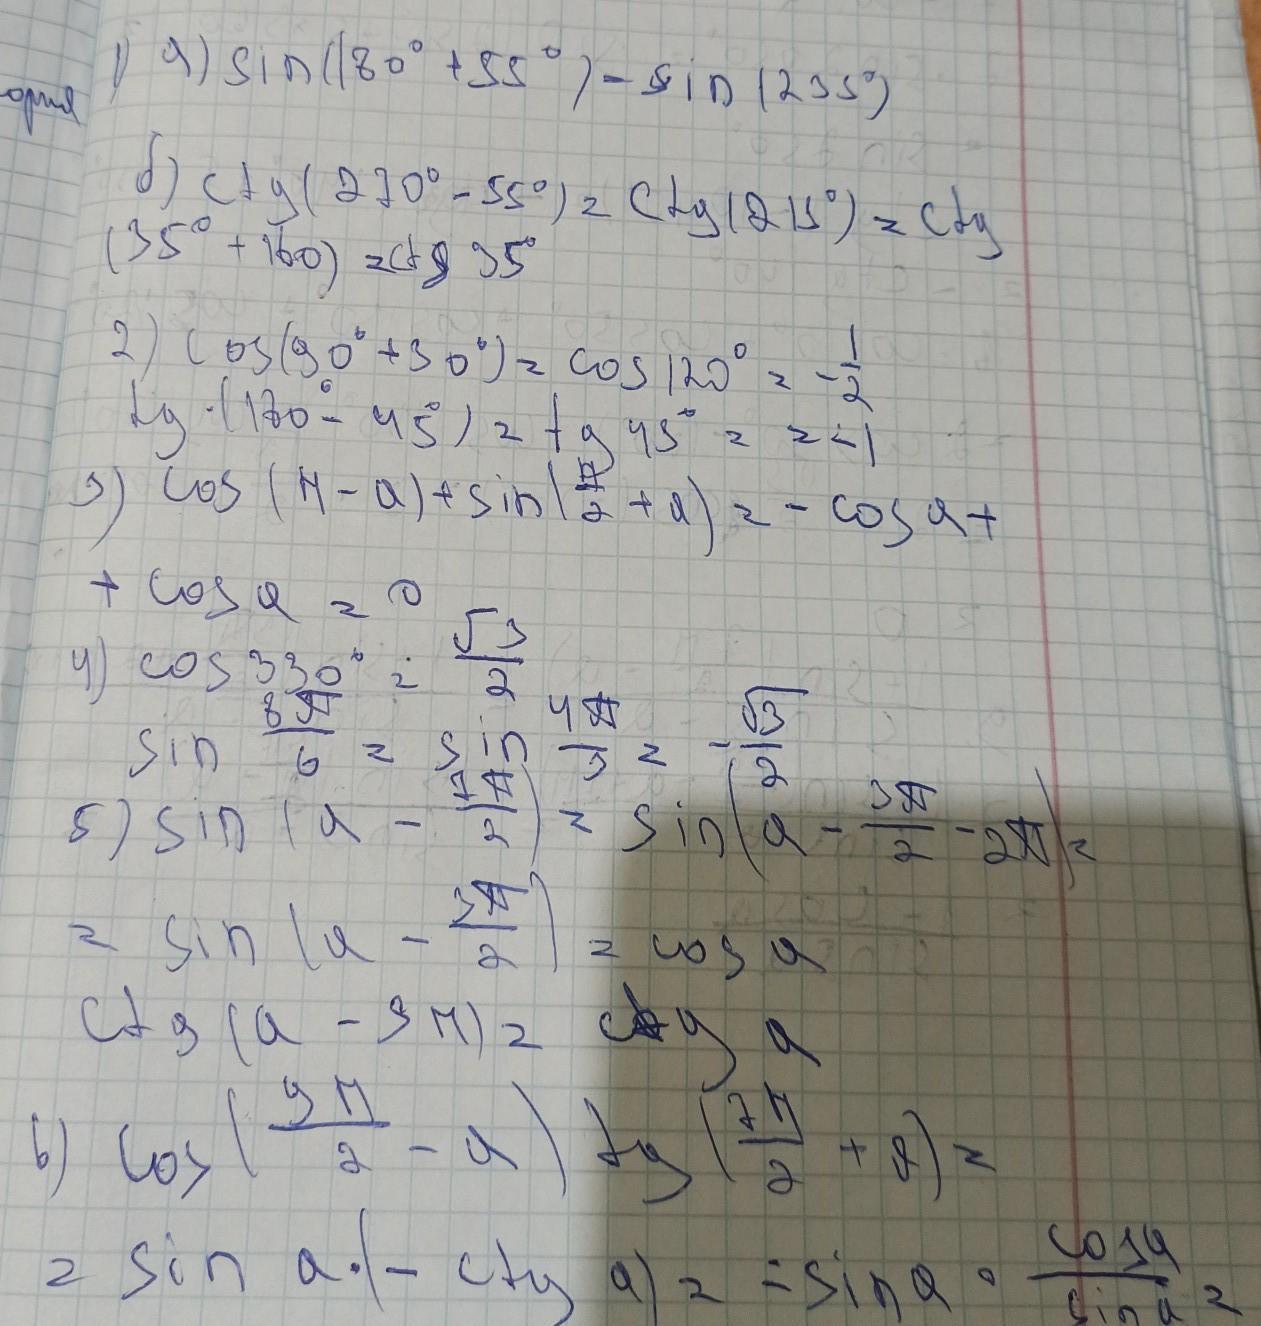 ория
1) а) sin(180° + 55°) = sin(235°)
б) ctg(270° - 55°) = ctg(215°) = ctg
(35° + 180) = ctg 35°
2) cos(90° + 30°) = cos 120° = -1/2
tg (180° - 45°) = tg 45° = = -1
3) cos (π - a) + sin(π/2 + a) = - cos a +
+ cos a = 0
4) cos 330° = √3/2
sin 8π/6 = sin 4π/3 = -√3/2
5) sin (a - 7π/2) = sin(a - 3π/2 - 2π) =
= sin (a - 3π/2) = cos a
ctg (a - 9π) = ctg a
6) cos(9π/2 - a) tg (7π/2 + a) =
= sin a · (- ctg a) = - sin a · cos a/sin a =